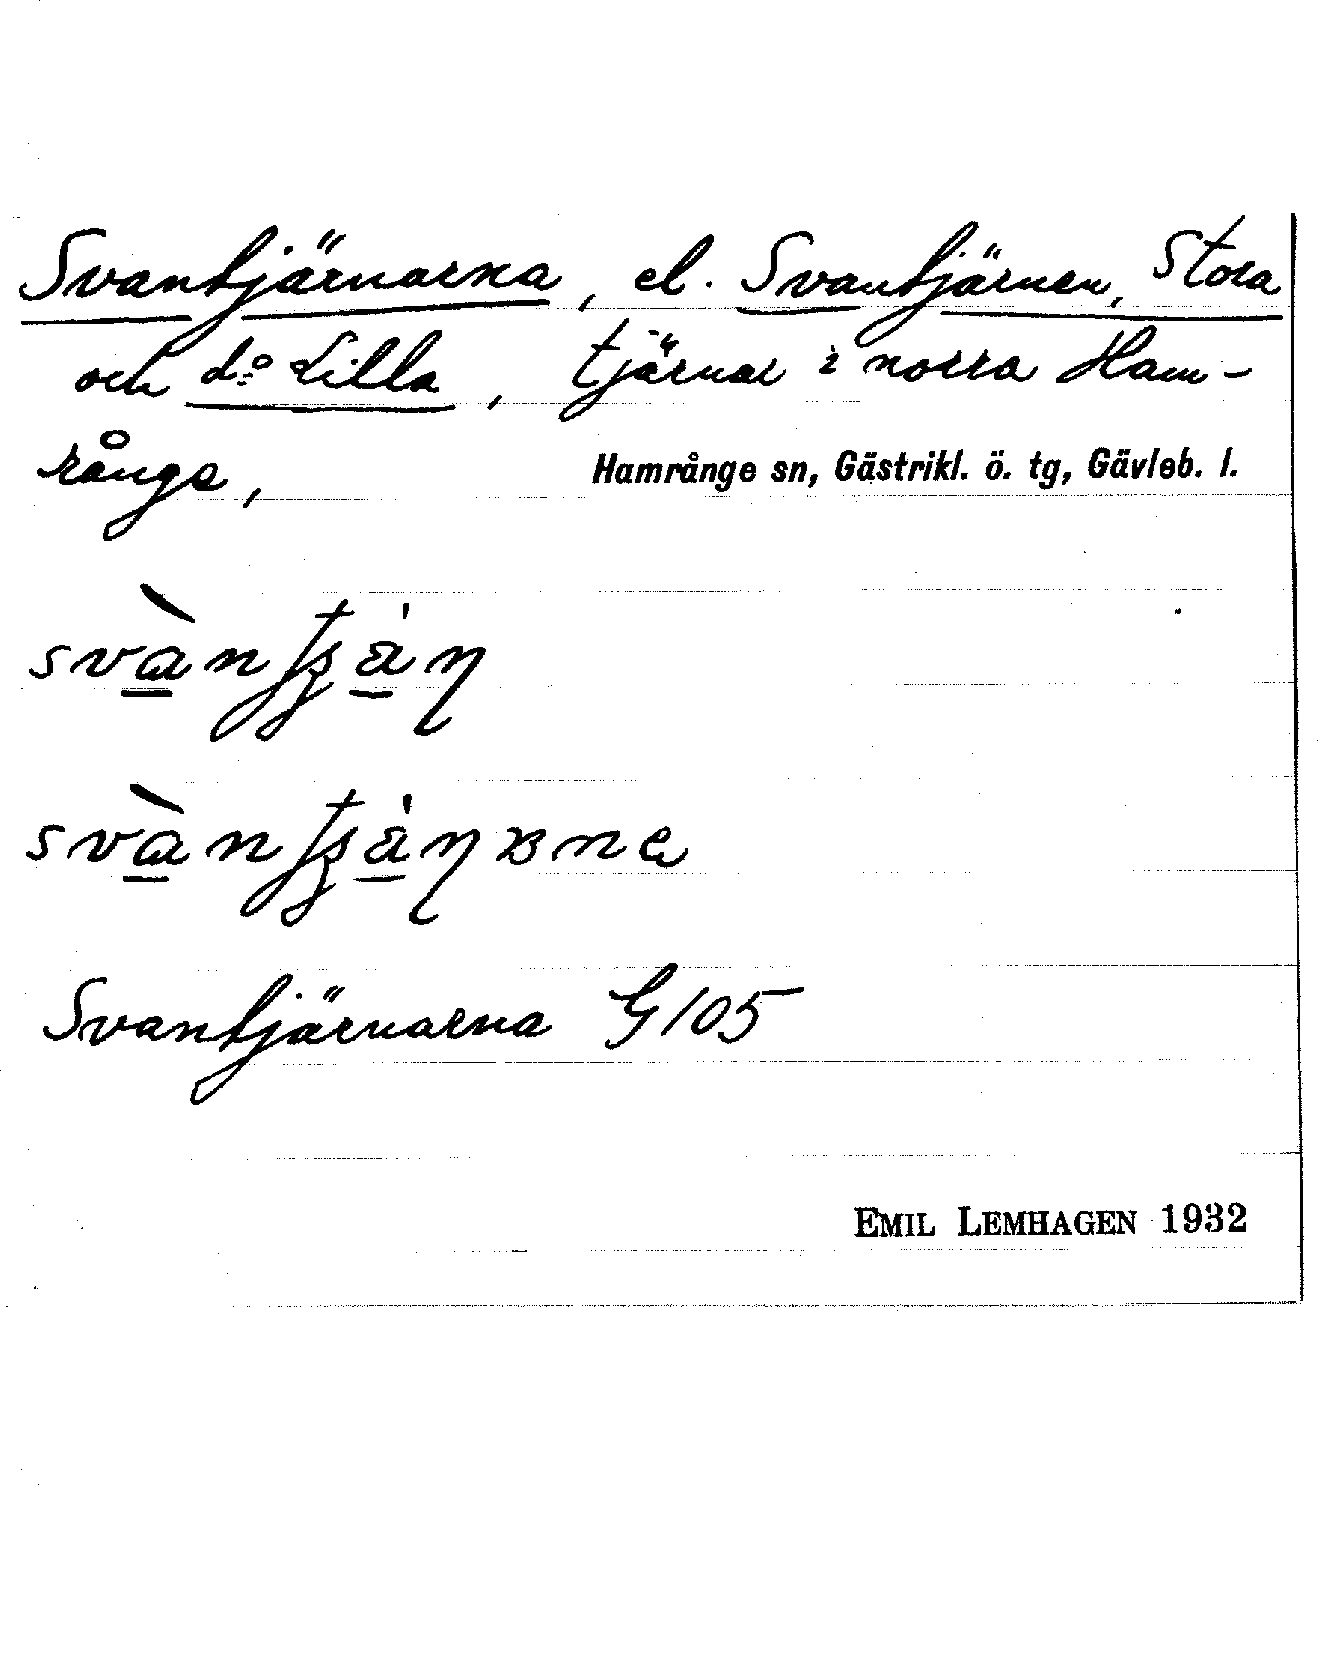 Svantjärnarna, el. Svantjärnen, Stora
och d:o Lilla, tjärnar i norra Ham-
rånge,
Hamrånge sn, Gästrikl. ö. tg, Gävleb. l.
Svantjärnarna G/05
EMIL LEMHAGEN 1932